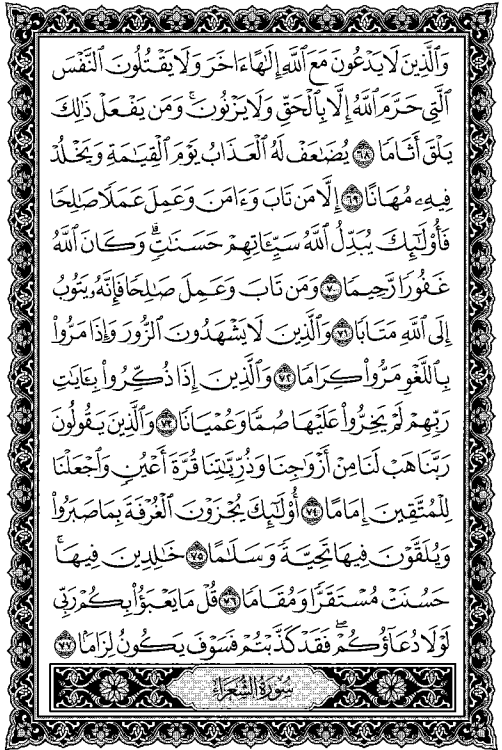 وَٱلَّذِينَ لَا يَدْعُونَ مَعَ ٱللَّهِ إِلَٰهًا ءَاخَرَ وَلَا يَقْتُلُونَ ٱلنَّفْسَ
ٱلَّتِي حَرَّمَ ٱللَّهُ إِلَّا بِٱلْحَقِّ وَلَا يَزْنُونَۚ وَمَن يَفْعَلْ ذَٰلِكَ
يَلْقَ أَثَامًا ٦٨ يُضَٰعَفْ لَهُ ٱلْعَذَابُ يَوْمَ ٱلْقِيَٰمَةِ وَيَخْلُدْ
فِيهِۦ مُهَانًا ٦٩ إِلَّا مَن تَابَ وَءَامَنَ وَعَمِلَ عَمَلًا صَٰلِحًا
فَأُو۟لَٰٓئِكَ يُبَدِّلُ ٱللَّهُ سَيِّـَٔاتِهِمْ حَسَنَٰتٍۗ وَكَانَ ٱللَّهُ
غَفُورًا رَّحِيمًا ٧٠ وَمَن تَابَ وَعَمِلَ صَٰلِحًا فَإِنَّهُۥ يَتُوبُ
إِلَى ٱللَّهِ مَتَابًا ٧١ وَٱلَّذِينَ لَا يَشْهَدُونَ ٱلزُّورَ وَإِذَا مَرُّوا۟
بِٱللَّغْوِ مَرُّوا۟ كِرَامًا ٧٢ وَٱلَّذِينَ إِذَا ذُكِّرُوا۟ بِـَٔايَٰتِ
رَبِّهِمْ لَمْ يَخِرُّوا۟ عَلَيْهَا صُمًّا وَعُمْيَانًا ٧٣ وَٱلَّذِينَ يَقُولُونَ
رَبَّنَا هَبْ لَنَا مِنْ أَزْوَٰجِنَا وَذُرِّيَّٰتِنَا قُرَّةَ أَعْيُنٍ وَٱجْعَلْنَا
لِلْمُتَّقِينَ إِمَامًا ٧٤ أُو۟لَٰٓئِكَ يُجْزَوْنَ ٱلْغُرْفَةَ بِمَا صَبَرُوا۟
وَيُلَقَّوْنَ فِيهَا تَحِيَّةً وَسَلَٰمًا ٧٥ خَٰلِدِينَ فِيهَاۚ
حَسُنَتْ مُسْتَقَرًّا وَمُقَامًا ٧٦ قُلْ مَا يَعْبَؤُا۟ بِكُمْ رَبِّي
لَوْلَا دُعَآؤُكُمْۖ فَقَدْ كَذَّبْتُمْ فَسَوْفَ يَكُونُ لِزَامًۢا ٧٧
سُورَةُ الشُّعَرَاءِ